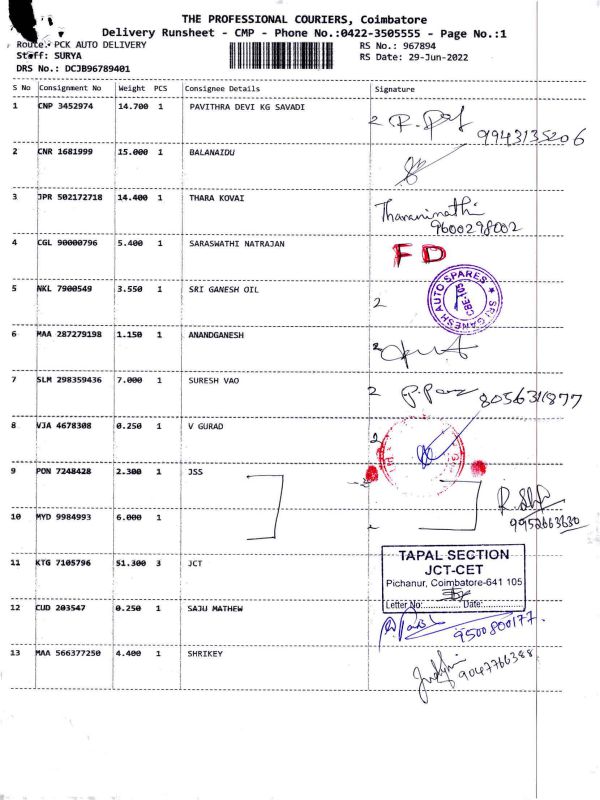 THE PROFESSIONAL COURIERS, Coimbatore
Delivery Runsheet - CMP - Phone No.:0422-3505555 - Page No.:1
Route: PCK AUTO DELIVERY RS No.: 967894
Staff: SURYA RS Date: 29-Jun-2022
DRS No.: DCJB96789401
S No Consignment No Weight PCS Consignee Details Signature
1 CNP 3452974 14.700 1 PAVITHRA DEVI KG SAVADI
2 9943135206
2 CNR 1681999 15.000 1 BALANAIDU
3 JPR 502172718 14.400 1 THARA KOVAI
Tharaninathi
9600298002
4 CGL 90000796 5.400 1 SARASWATHI NATRAJAN FD
5 NKL 7900549 3.550 1 SRI GANESH OIL
2 SRI GANESH AUTO SPARES CBE-105
6 MAA 287279198 1.150 1 ANANDGANESH
2
7 SLM 298359436 7.000 1 SURESH VAO
2 8056311877
8 VJA 4678308 0.250 1 V GURAD
2
9 PON 7248428 2.300 1 JSS
9952663630
10 MYD 9984993 6.000 1
11 KTG 7105796 51.300 3 JCT
TAPAL SECTION
JCT-CET
Pichanur, Coimbatore-641 105
Letter No:............. Date:...........
12 CUD 203547 0.250 1 SAJU MATHEW
9500800177.
13 MAA 566377250 4.400 1 SHRIKEY
9047766388